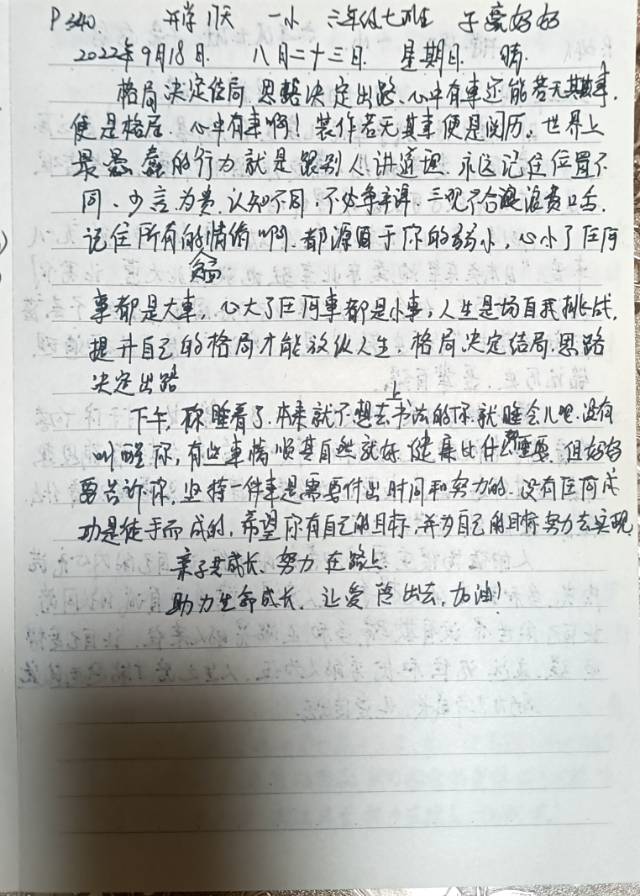 P340 开学17天 一小 六年级七班 子豪好好
2022年9月18日 八月二十三日 星期日 晴
格局决定结局 思路决定出路、心中有事还能若无其事,
便是格局、心中有事啊!装作若无其事便是阅历。世界上
最愚蠢的行为就是跟别人讲道理、永远记住位置不
同、少言为贵、认知不同、不必争辩、三观不合浪费口舌、
记住所有的情绪啊、都源自于你的弱小,心小了任何
事都是大事,心大了任何事都是小事,人生是场自我挑战,
提升自己的格局才能放纵人生、格局决定结局、思路
决定出路
下午,你睡着了、本来就不想去上书法的你就睡会儿吧、没有
叫醒你,有些事情顺其自然就好、健康比什么都重要、但妈妈
要告诉你,坚持一件事是需要付出时间和努力的、没有任何成
功是徒手而成的,希望你有自己的目标,并为自己的目标努力去实现
亲子共成长、努力在路上
助力生命成长、让爱传出去,加油!